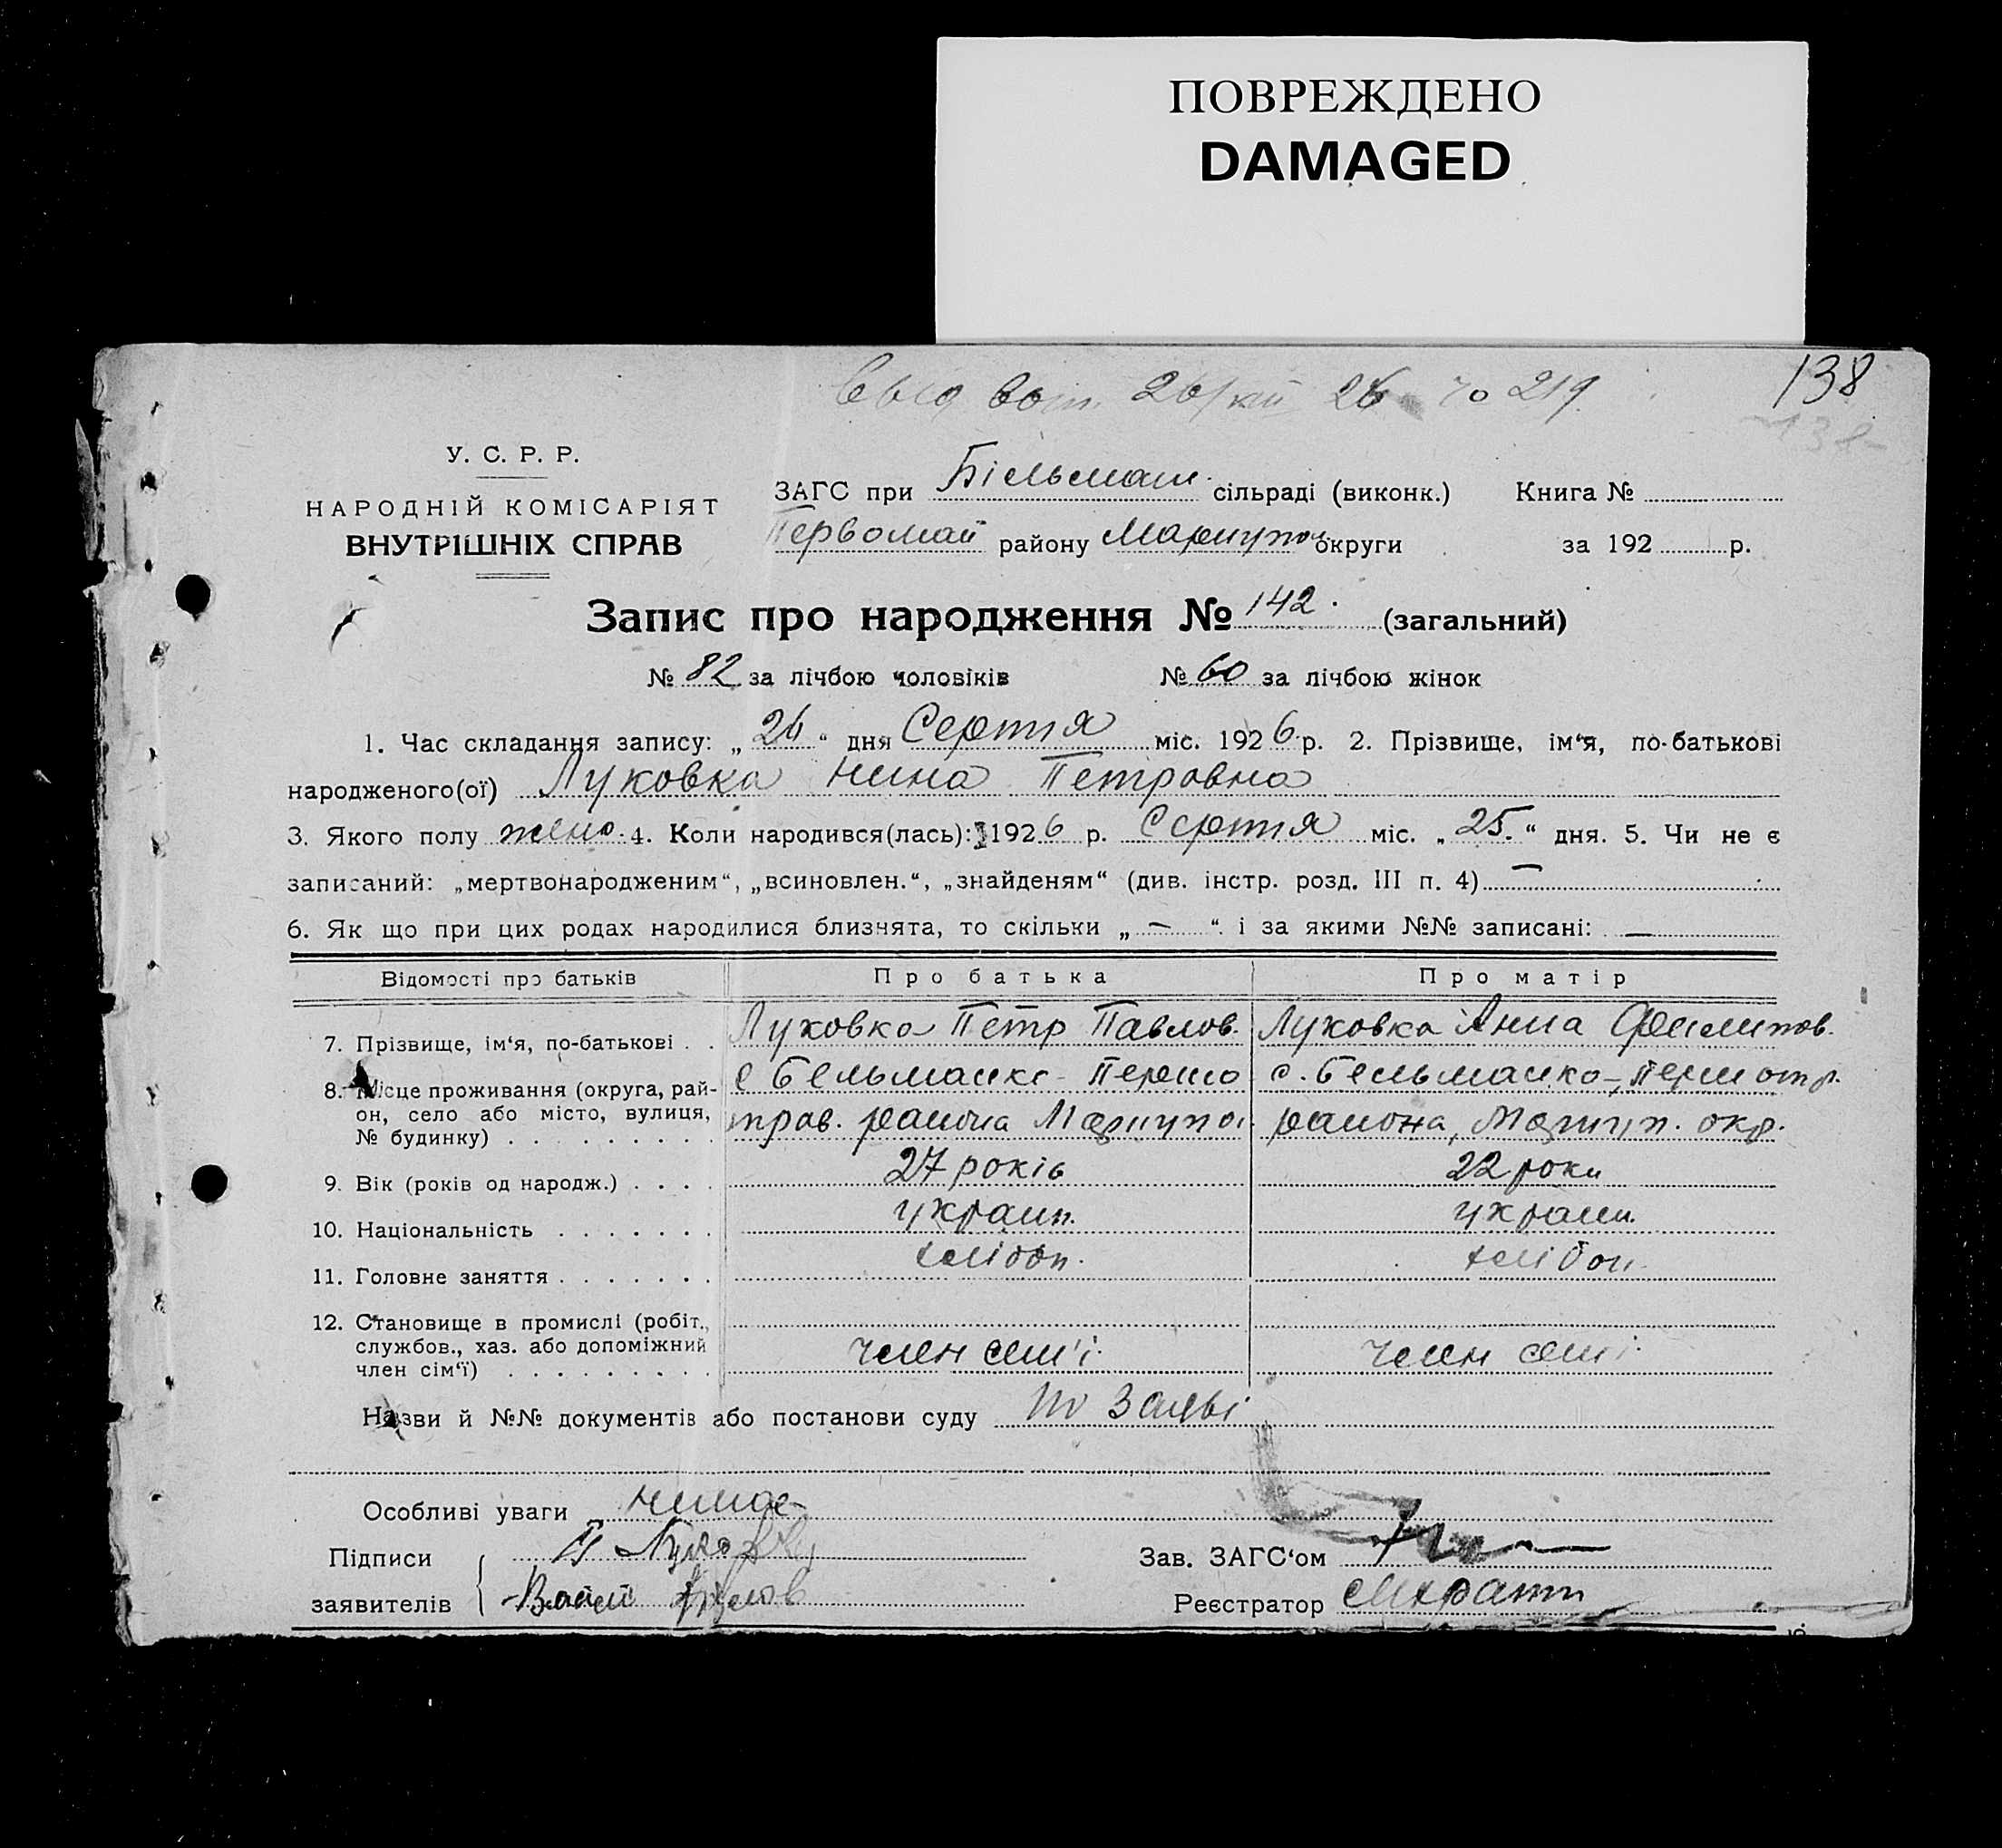 ПОВРЕЖДЕНО
DAMAGED
138
138
У. С. Р. Р.
НАРОДНІЙ КОМІСАРІЯТ
ВНУТРІШНІХ СПРАВ
ЗАГС при Більмаш. сільраді (виконк.) Книга №
Первомай району Мариупол округи за 192 р.
Запис про народження № 142. (загальний)
№ 82 за лічбою чоловіків № 60 за лічбою жінок
1. Час складання запису: „ 26 “ дня Серпня міс. 1926 р. 2. Прізвище, ім‘я, по-батькові
народженого(ої) Луковка Нина Петровна
3. Якого полу жіно. 4. Коли народився(лась): 1926 р. Серпня міс. „ 25. “ дня. 5. Чи не є
записаний: „мертвонародженим“, „всиновлен.“, „знайденям“ (див. інстр. розд. III п. 4) —
6. Як що при цих родах народилися близнята, то скільки „ — “ і за якими №№ записані: —
Відомості про батьків Про батька Про матір
7. Прізвище, ім‘я, по-батькові . . Луковка Петр Павлов. Луковка Анна Филипов.
8. Місце проживання (округа, рай- с Бельманко - Першо с. Бельманко - Першотр.
он, село або місто, вулиця, трав. района Мариупол. района, Мариуп. окр.
№ будинку)
9. Вік (років од народж.) . . . . 27 років 22 роки
10. Національність . . . . . . . україн. україн.
11. Головне заняття . . . . . . . хлібоп. хлібоп.
12. Становище в промислі (робіт.,
службов., хаз. або допоміжний член сем'ї. член сем'ї.
член сім‘ї)
Назви й №№ документів або постанови суду по заяві
Особливі уваги немає
Підписи П Луковка Зав. ЗАГС‘ом
заявителів Реєстратор